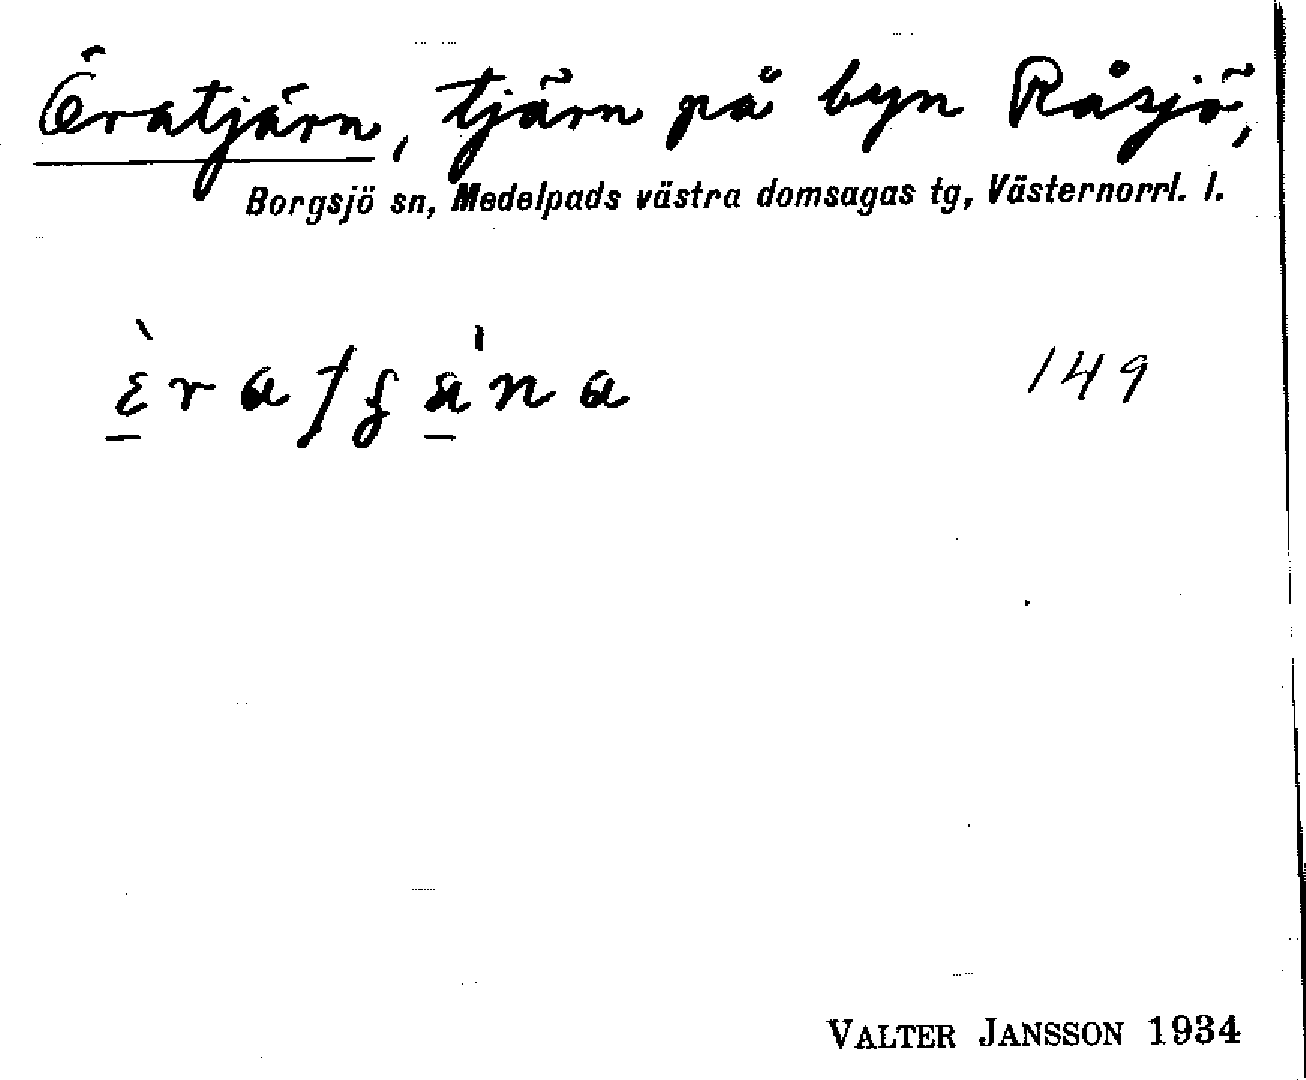 Öratjärn, tjärn på byn Råsjö,
Borgsjö sn, Medelpads västra domsagas tg, Västernorrl. l.
149
VALTER JANSSON 1934